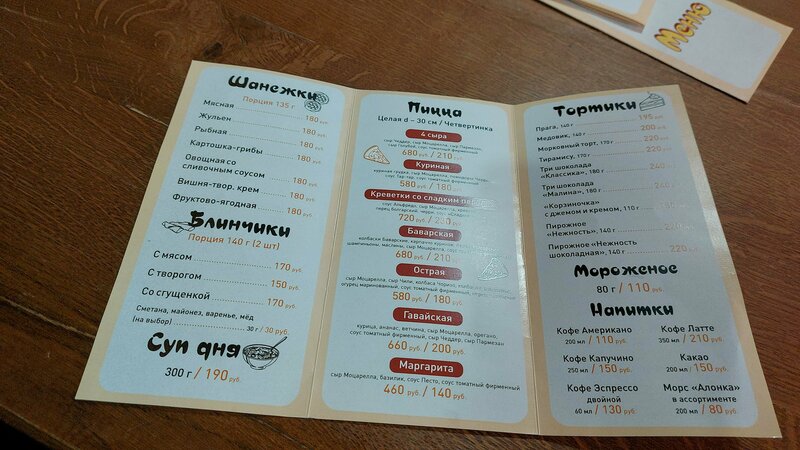 Меню
Шанежки
Порция 135 г
Мясная 180 руб.
Жульен 180 руб.
Рыбная 180 руб.
Картошка-грибы 180 руб.
Овощная со
сливочным соусом 180 руб.
Вишня-твор. крем 180 руб.
Фруктово-ягодная 180 руб.
Блинчики
Порция 140 г (2 шт)
С мясом 170 руб.
С творогом 150 руб.
Со сгущенкой 170 руб.
Сметана, майонез, варенье, мёд
(на выбор) 30 г / 30 руб.
Суп дня
300 г / 190 руб.
Пицца
Целая d – 30 см / Четвертинка
4 сыра
сыр Чеддер, сыр Моцарелла, сыр Пармезан,
сыр Голубой, соус томатный фирменный
680 руб. / 210 руб.
Куриная
куриная грудка, сыр Моцарелла, Черри,
соус Тар-тар, соус томатный фирменный
580 руб. / 180 руб.
Креветки со сладким
соус Альфредо, сыр Моцарелла,
перец болгарский, черри, соус
720 руб. / 230 руб.
Баварская
колбаски Баварские, карбонад куриный,
шампиньоны, маслины, сыр Моцарелла,
680 руб. / 210 руб.
Острая
сыр Моцарелла, сыр Чили, колбаса Чоризо,
огурец маринованный, соус томатный фирменный,
580 руб. / 180 руб.
Гавайская
курица, ананас, ветчина, сыр Моцарелла, орегано,
соус томатный фирменный, сыр Чеддер, сыр Пармезан
660 руб. / 200 руб.
Маргарита
сыр Моцарелла, базилик, соус Песто, соус томатный фирменный
460 руб. / 140 руб.
Тортики
Прага, 140 г 195 руб.
Медовик, 140 г 200 руб.
Морковный торт, 170 г 220 руб.
Тирамису, 170 г 220 руб.
Три шоколада
«Классика», 180 г 240
Три шоколада
«Малина», 180 г 240
«Корзиночка»
с джемом и кремом, 110 г 195 руб.
Пирожное
«Нежность», 140 г 220 руб.
Пирожное «Нежность
шоколадная», 140 г 220 руб.
Мороженое
80 г / 110 руб.
Напитки
Кофе Американо
200 мл / 110 руб.
Кофе Латте
350 мл / 210 руб.
Кофе Капучино
250 мл / 150 руб.
Какао
200 мл / 150 руб.
Кофе Эспрессо
двойной
60 мл / 130 руб.
Морс «Алонка»
в ассортименте
200 мл / 80 руб.